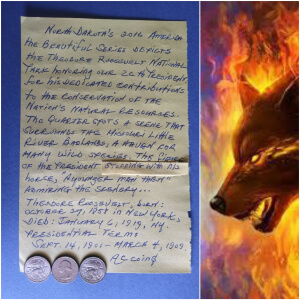 North Dakota's 2016 America
the Beautiful Series depicts
the Theodore Roosevelt National
Park honoring our 26th President
for his dedicated contributions
to the conservation of the
Nation's natural resources.
The Quarter a scene that
surrounds the Missouri Little
River Badlands, a haven for
many wild species. The
of the President standing with his
horse, younger man then
admiring the scenery...
Theodore Roosevelt, born:
October 27, 1858 in New York,
Died: January 6, 1919, NY.
Presidential Term:
Sept. 14, 1901 - March 4, 1909.